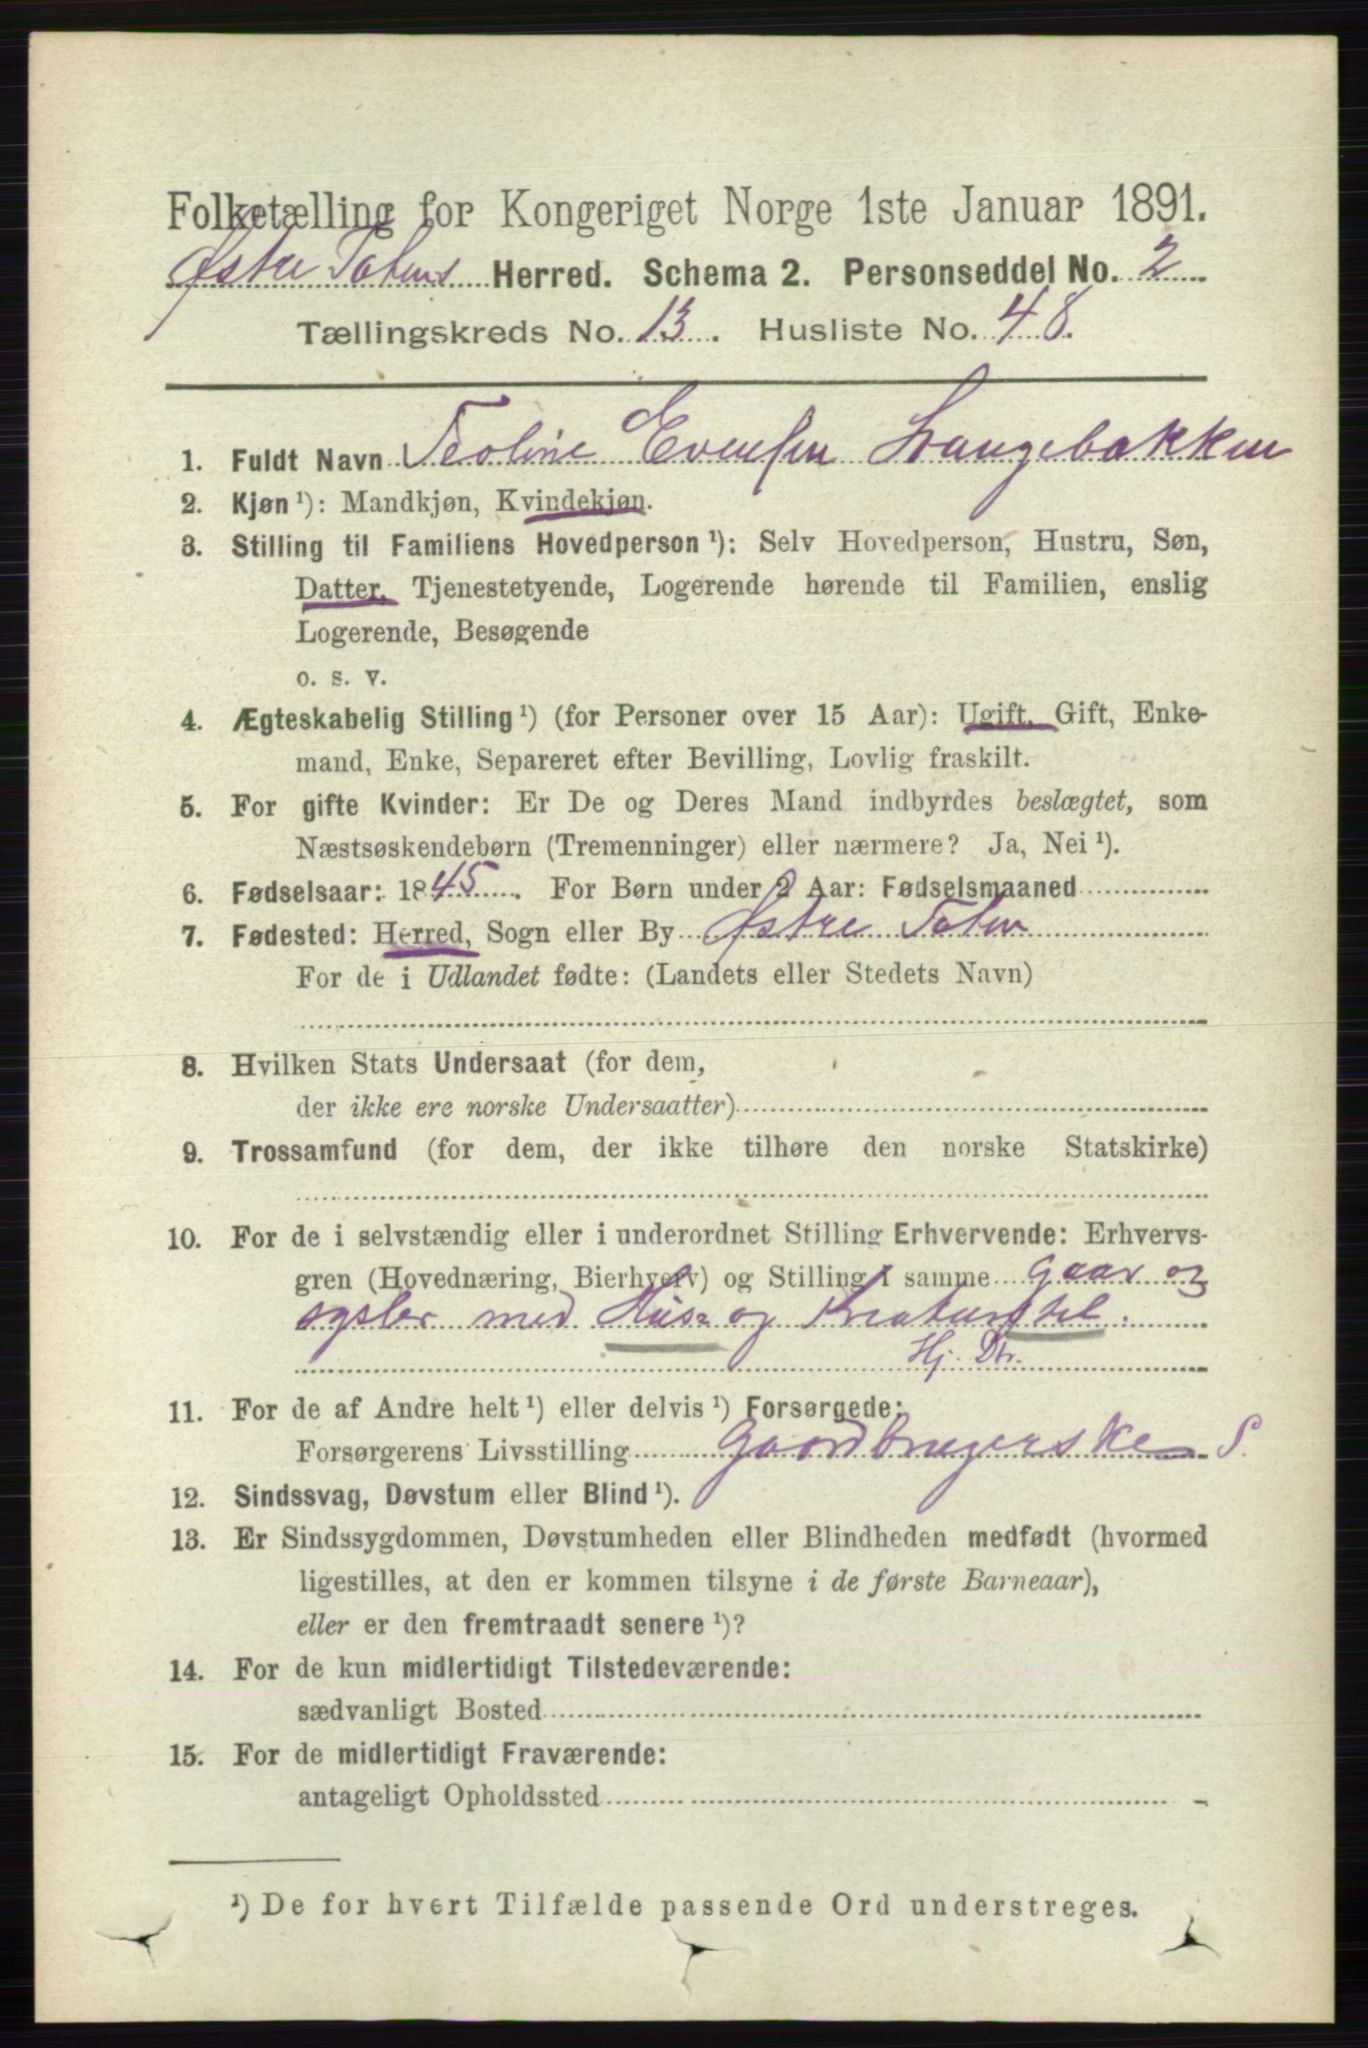 Folketælling for Kongeriget Norge 1ste Januar 1891.
Østre Totens Herred. Schema 2. Personseddel No. 2
Tællingskreds No. 13. Husliste No. 48.
1. Fuldt Navn Teoline Evensen Langebakken
2. Kjøn ¹): Mandkjøn, Kvindekjøn.
3. Stilling til Familiens Hovedperson ¹): Selv Hovedperson, Hustru, Søn,
Datter, Tjenestetyende, Logerende hørende til Familien, enslig
Logerende, Besøgende
o. s. v.
4. Ægteskabelig Stilling ¹) (for Personer over 15 Aar): Ugift, Gift, Enke-
mand, Enke, Separeret efter Bevilling, Lovlig fraskilt.
5. For gifte Kvinder: Er De og Deres Mand indbyrdes beslægtet, som
Næstsøskendebørn (Tremenninger) eller nærmere? Ja, Nei ¹).
6. Fødselsaar: 1845. For Børn under 2 Aar: Fødselsmaaned
7. Fødested: Herred, Sogn eller By Østre Toten
For de i Udlandet fødte: (Landets eller Stedets Navn)
8. Hvilken Stats Undersaat (for dem,
der ikke ere norske Undersaatter)
9. Trossamfund (for dem, der ikke tilhøre den norske Statskirke)
10. For de i selvstændig eller i underordnet Stilling Erhvervende: Erhvervs-
gren (Hovednæring, Bierhverv) og Stilling i samme Gaar og
sysler med Hus- og Kreaturstel.
Hj. Dtr.
11. For de af Andre helt ¹) eller delvis ¹) Forsørgede:
Forsørgerens Livsstilling Gaardbrugerske S.
12. Sindssvag, Døvstum eller Blind ¹).
13. Er Sindssygdommen, Døvstumheden eller Blindheden medfødt (hvormed
ligestilles, at den er kommen tilsyne i de første Barneaar),
eller er den fremtraadt senere ¹)?
14. For de kun midlertidigt Tilstedeværende:
sædvanligt Bosted
15. For de midlertidigt Fraværende:
antageligt Opholdssted
¹) De for hvert Tilfælde passende Ord understreges.